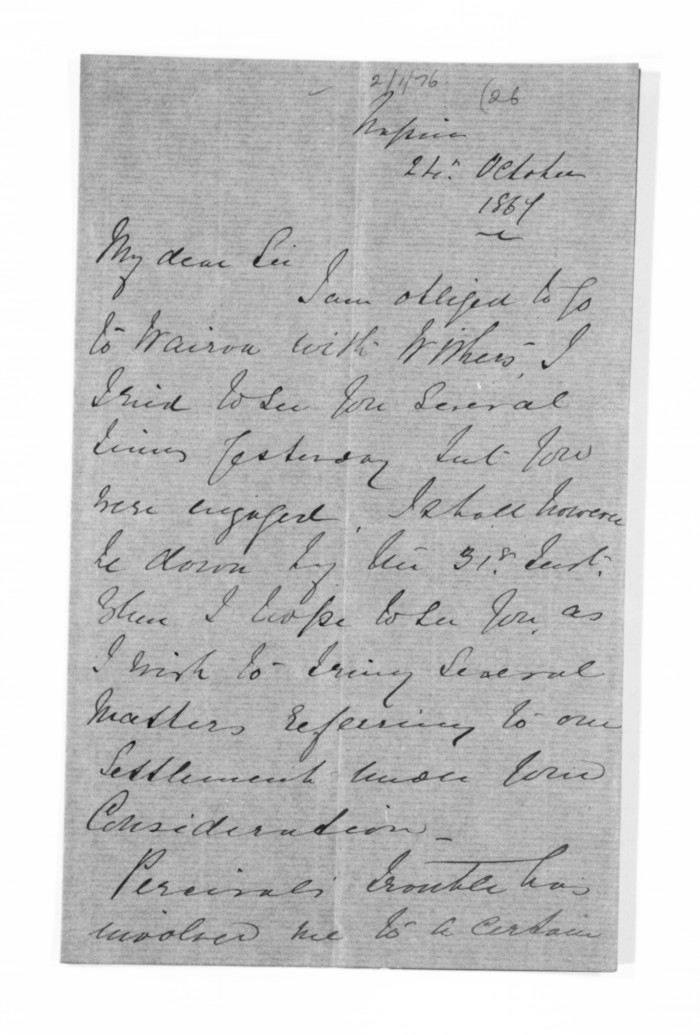 2/1/76 (26
Napier
24th October
1867
My dear Sir
I am obliged to go
to Wairoa with Withers, I
tried to see you several
times yesterday but you
were engaged. I shall however
be down by the 31st Inst.
when I hope to see you, as
I wish to bring several
matters referring to our
Settlement under your
Consideration_
Percival's trouble has
involved me to a certain